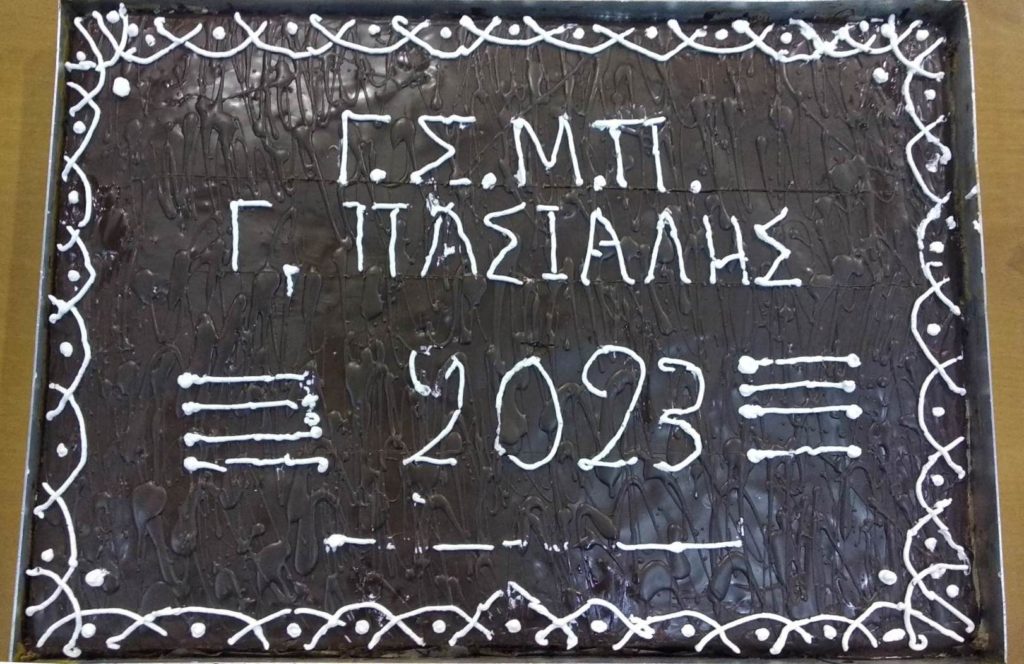 Γ.Σ.Μ.Π.
Γ. ΠΑΣΙΑΛΗΣ
2023